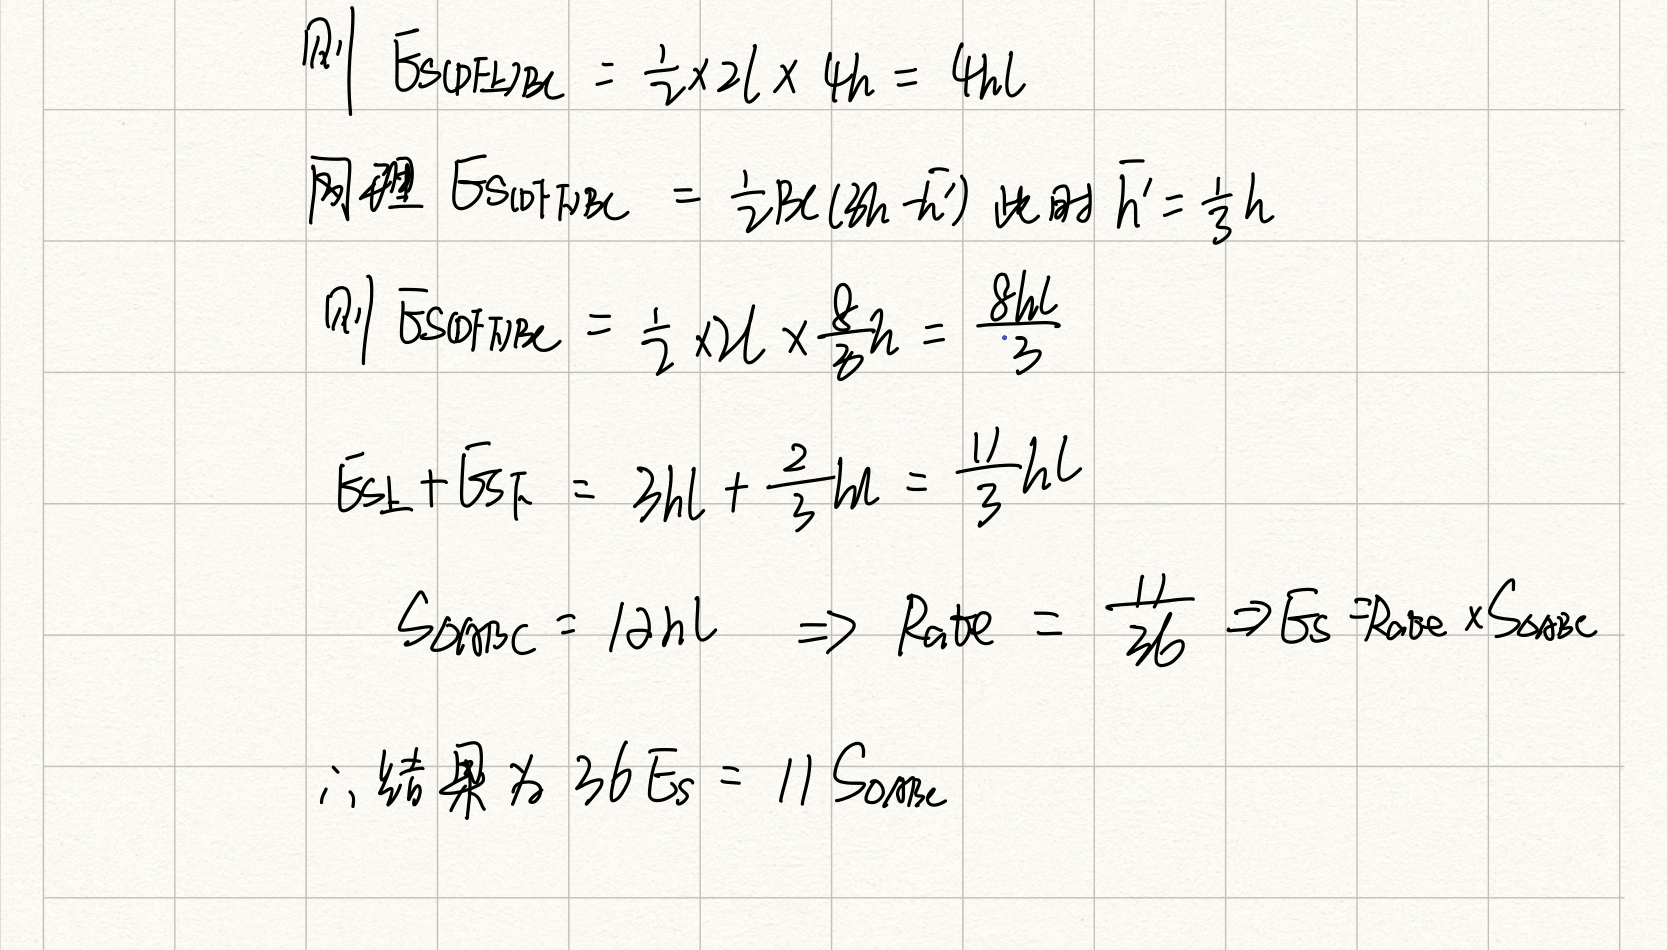 则 E̅S(DF上)BC = 1/2 × 2l × 4h = 4hl
同理 E̅S(DF下)BC = 1/2 BC(3h - h̅') 此时 h̅' = 1/3 h
则 E̅S(DF下)BC = 1/2 × 2l × 8/3 h = 8hl/3
E̅S上 + E̅S下 = 3hl + 2/3 hl = 11/3 hl
S△ABC = 12hl ⇒ Rate = 11/36 ⇒ E̅s = Rate × S△ABC
∴ 结果为 36 E̅s = 11 S△ABC